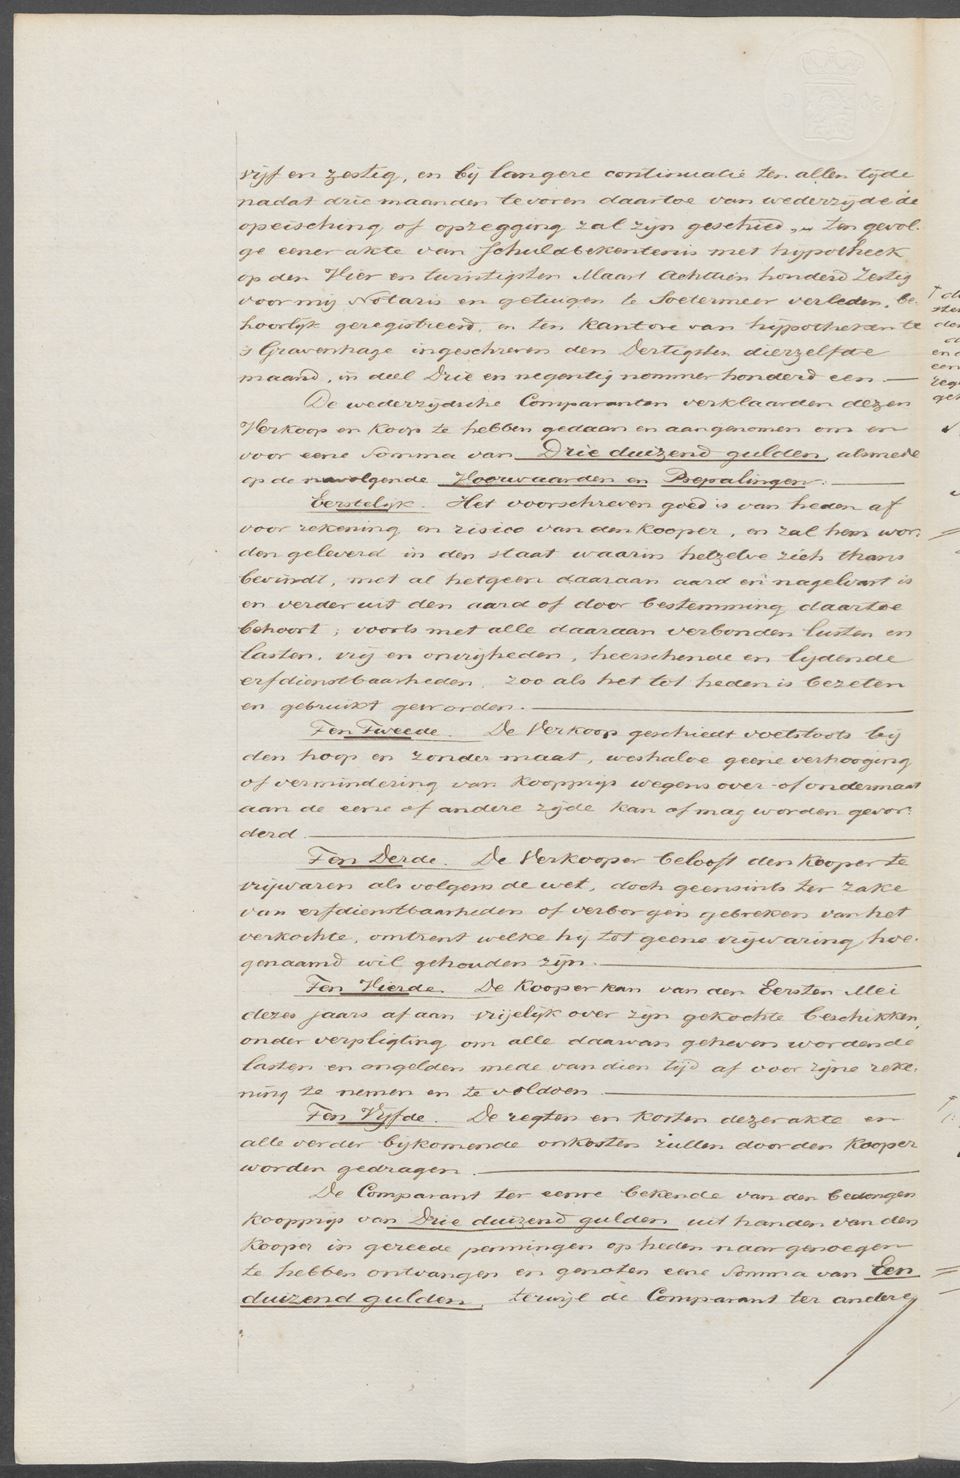 vijf en zestig, en bij langere continuatie ten allen tijde
nadat drie maanden tevoren daartoe van wederzijde de
opeisching of opzegging zal zijn geschied, ten gevol-
ge eener akte van Schuldbekentenis met hypotheek
op den Vier en twintigsten Maart Achttien honderd Zestig
voor mij Notaris en getuigen te Soetermeer verleden, be-
hoorlijk geregistreerd, en ten Kantore van hypotheken te
's Gravenhage ingeschreven den Dertigsten dierzelfde
maand, in deel Drie en negentig nommer honderd een.
De wederzijdsche Comparanten verklaarden dezen
Verkoop en Koop te hebben gedaan en aangenomen om en
voor eene Somma van Drie duizend gulden, alsmede
op de navolgende Voorwaarden en Bepalingen:
Eerstelijk. Het voorschreven goed is van heden af
voor rekening en risico van den Kooper, en zal hem wor-
den geleverd in den staat waarin hetzelve zich thans
bevindt, met al hetgeen daaraan aard en nagelvast is
en verder uit den aard of door bestemming daartoe
behoort; voorts met alle daaraan verbonden lusten en
lasten, vrij en onvrijheden, heerschende en lijdende
erfdienstbaarheden, zoo als het tot heden is bezeten
en gebruikt geworden.
Ten Tweede. De Verkoop geschiedt voetstoots bij
den hoop en zonder maat, weshalve geene verhooging
of vermindering van Koopprijs wegens over- of ondermaat
aan de eene of andere zijde kan of mag worden gevor-
derd.
Ten Derde. De Verkooper belooft den Kooper te
vrijwaren als volgens de wet, doch geensints ter zake
van erfdienstbaarheden of verborgen gebreken van het
verkochte, omtrent welke hij tot geene vrijwaring hoe-
genaamd wil gehouden zijn.
Ten Vierde. De Kooper kan van den Eersten Mei
dezes jaars af aan vrijelijk over zijn gekochte beschikken,
onder verpligting om alle daarvan geheven wordende
lasten en ongelden mede van dien tijd af voor zijne reke-
ning te nemen en te voldoen.
Ten Vijfde. De regten en kosten dezer akte en
alle verder bijkomende onkosten zullen door den Kooper
worden gedragen.
De Comparant ter eenre bekende van den bedongen
Koopprijs van Drie duizend gulden uit handen van den
Kooper in gereede penningen op heden naar genoegen
te hebben ontvangen en genoten eene Somma van Een
duizend gulden, terwijl de Comparant ter andere